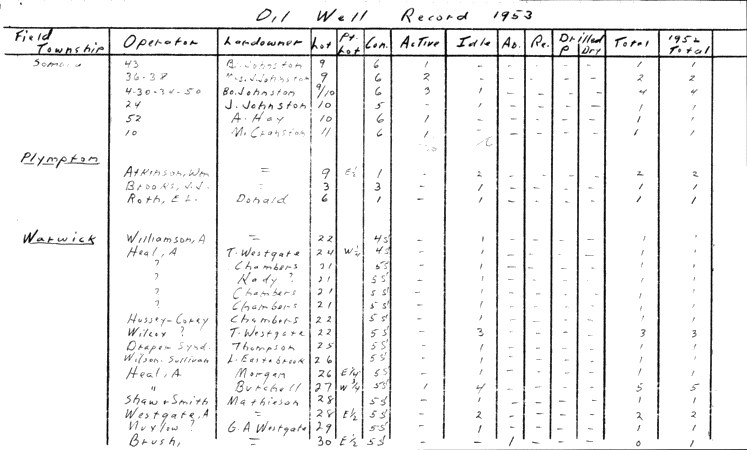 Oil Well Record 1953
Field Township Operator Landowner Lot Pt. Lot Con. Active Idle Ab. Re. Drilled P Dry Total 1952 Total
43 B. Johnston 9 6 1 - - - - - 1 1
36-38 Mrs. J. Johnston 9 6 2 - - - - - 2 2
4-30-34-50 Bo. Johnston 9/10 6 3 1 - - - - 4 4
24 J. Johnston 10 5 - 1 - - - - 1 1
52 A. Hay 10 6 1 - - - - - 1 1
10 M. Cranston 11 6 1 - - - - 1 1
Plympton
Atkinson, Wm = 9 E½ 1 - 2 - - - - 2 2
Brooks, J.J. 3 3 - 1 - - - - 1 1
Roth, E L. Donald 6 1 - 1 - - - - 1 1
Warwick Williamson, A = 22 4S - 1 - - - - 1 1
Heal, A T. Westgate 24 4S - 1 - - - - 1 1
? Chambers 21 5S - 1 - - - - 1 1
? Kady ? 21 5S - 1 - - - - 1 1
? Chambers 21 5S - 1 - - - - 1 1
? Chambers 21 5S - 1 - - - - 1 1
Hussey-Corey Chambers 22 5S - 1 - - - - 1 1
Wilcox ? T. Westgate 22 5S - 3 - - - - 3 3
Draper Synd. Thompson 25 5S - 1 - - - - 1 1
Wilson. Sullivan L. Eastabrook 26 5S - 1 - - - - 1 1
Heal, A Morgan 26 E¼ 5S - 1 - - - - 1 1
" Burchell 27 W¾ 5S 1 4 - - - - 5 5
Shaw & Smith Mathieson 28 5S - 1 - - - - 1 1
Westgate, A = 28 E½ 5S - 2 - - - - 2 2
? G. A Westgate 29 5S - 1 - - - - 1 1
Brush, = 30 E½ 5S - - 1 - - - 0 1